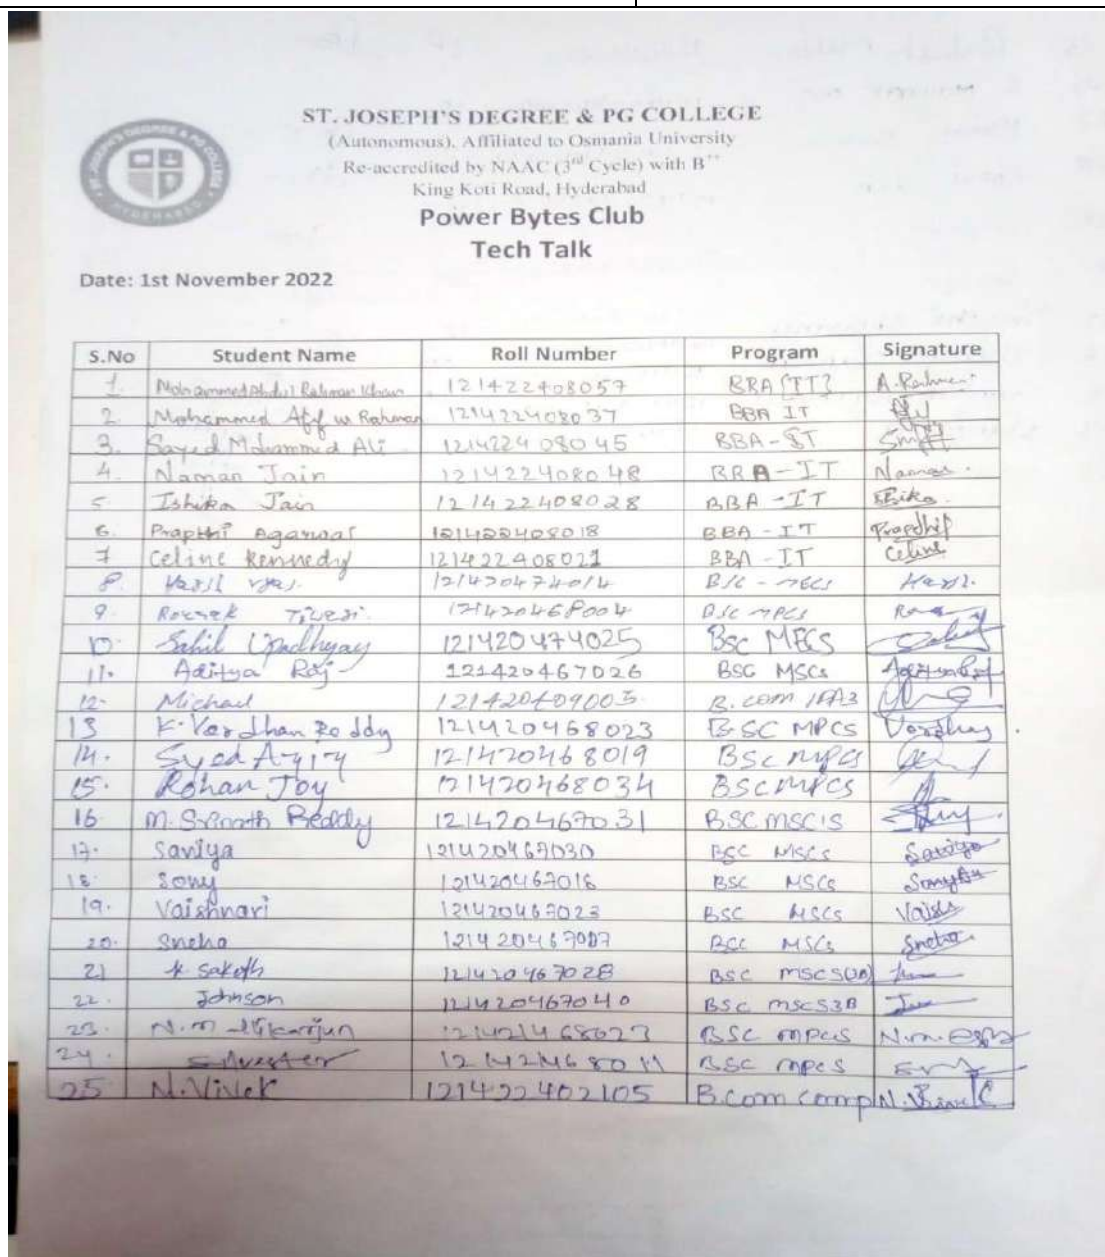 ST. JOSEPH'S DEGREE & PG COLLEGE
(Autonomous), Affiliated to Osmania University
Re-accredited by NAAC (3rd Cycle) with B++
King Koti Road, Hyderabad
Power Bytes Club
Tech Talk
Date: 1st November 2022
S.No Student Name Roll Number Program Signature
1. Mohammed Abdul Rahman Khan 121422408057 BBA (IT) A. Rahman
2. Mohammed Afif ur Rahman 121422408037 BBA IT
3. Sayed Mohammed Ali 121422408045 BBA-IT
4. Naman Jain 121422408048 BBA-IT Naman
5. Ishika Jain 121422408028 BBA-IT Ishika
6. Prapthi Agarwal 121422408018 BBA-IT
7 Celine Kennedy 121422408021 BBA-IT Celine
8. 121420474014 BSC-MECS
9. 121420468004 BSC MPCS
10. Sahil Upadhyay 121420474025 BSC MECS
11. Aditya Raj 121420467026 BSC MSCs
12. Michael B.com
13 K. Vardhan Reddy 121420468023 BSC MPCS Vardhan
14. Syed 121420468019 BSC MPCS
15. Rohan Joy 121420468034 BSC MPCS
16 M. Srinath Reddy 121420467031 BSC MSCIS
17. Saviya 121420467030 BSC MSCs Saviya
18. Sony 121420467018 BSC MSCs Sony
19. Vaishnavi 121420467023 BSC MSCs
20. Sneha BSC MSCs Sneha
21 K. Saketh 121420467028 BSC
22. Johnson 121420467040 BSC MSCS3B
23. 121421468023 BSC MPCS
24. 121421468011 BSC MPCS
25 N. Vivek 121422402105 B.com comp N. Vivek